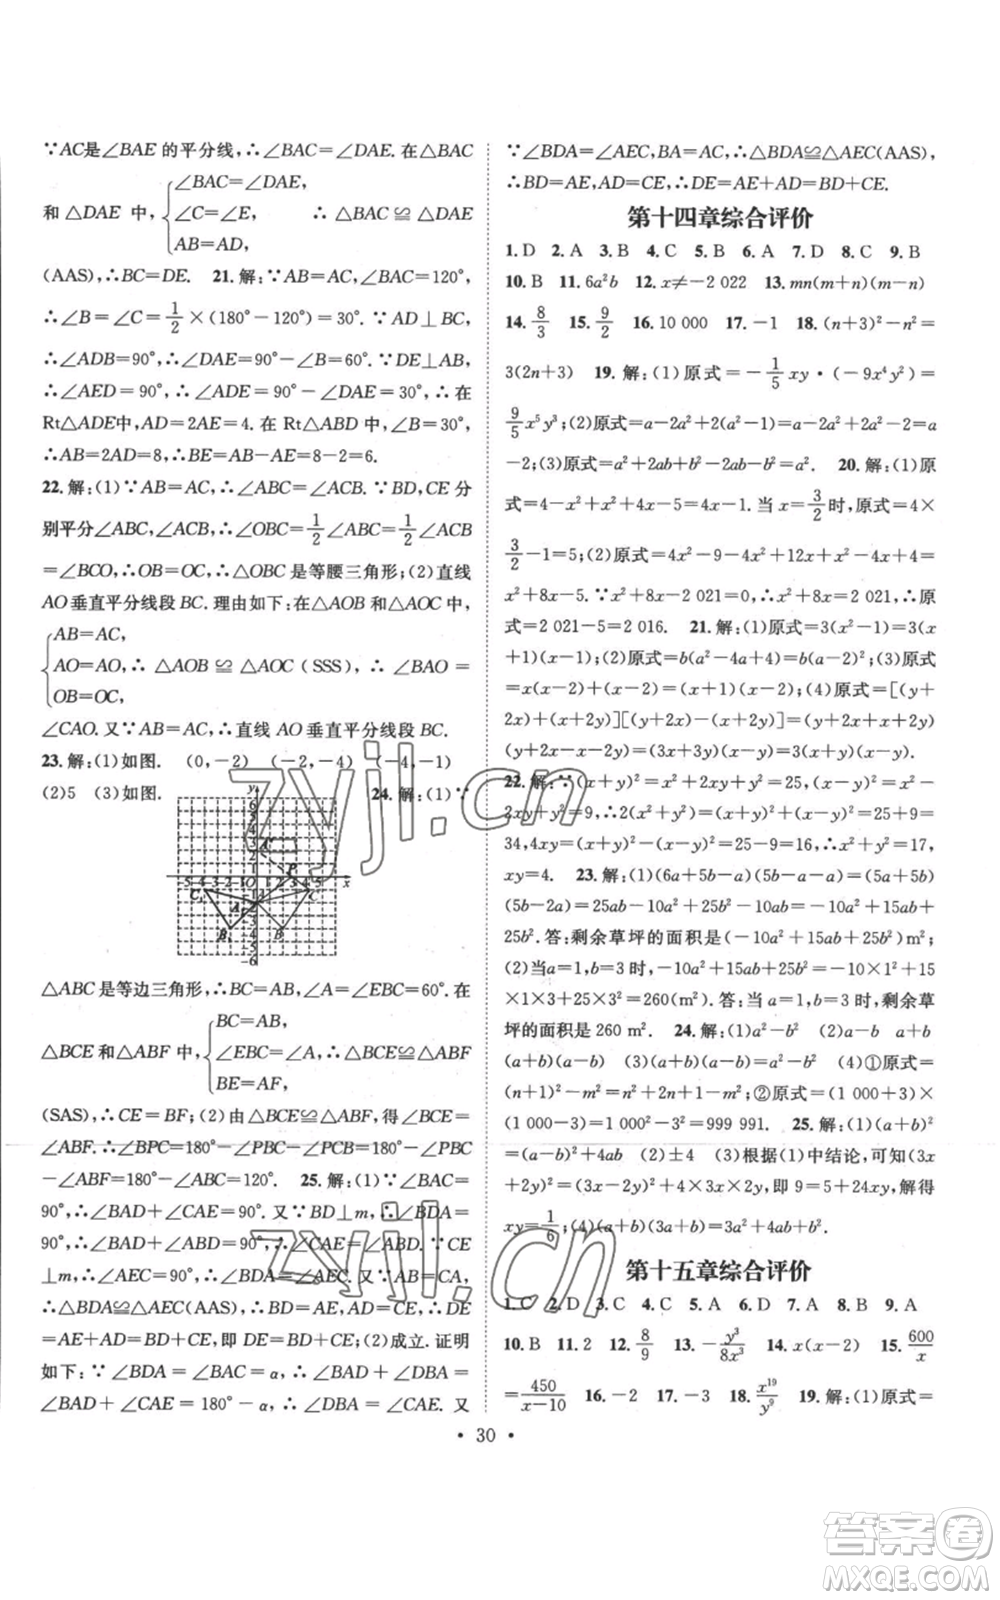 ∵AC是∠BAE 的平分线,∴∠BAC=∠DAE. 在△ABC
和△DAE 中,{∠BAC=∠DAE,
∠C=∠E,
AB=AD, ∴ △BAC ≌ △DAE
(AAS),∴BC=DE. 21.解:∵AB=AC,∠BAC=120°,
∴∠B=∠C=1/2×(180°-120°)=30°. ∵AD⊥BC,
∴∠ADB=90°,∴∠DAE=90°-∠B=60°. ∵DE⊥AB,
∴∠AED=90°,∴∠ADE=90°-∠DAE=30°,∴在
Rt△ADE中,AD=2AE=4. 在 Rt△ABD 中,∠B=30°,
∴AB=2AD=8,∴BE=AB-AE=8-2=6.
22.解:(1)∵AB=AC,∴∠ABC=∠ACB. ∵BD,CE 分
别平分∠ABC,∠ACB,∴∠OBC=1/2∠ABC=1/2∠ACB
=∠BCO,∴OB=OC,∴△OBC 是等腰三角形;(2)直线
AO垂直平分线段 BC. 理由如下:在△AOB 和△AOC 中,
{AB=AC,
AO=AO,∴ △AOB ≌ △AOC (SSS),∴ ∠BAO =
OB=OC,
∠CAO. 又∵AB=AC,∴直线 AO 垂直平分线段 BC.
23.解:(1)如图. (0,-2) (-2,-4) (-4,-1)
(2)5 (3)如图. 24.解:(1)∵
△ABC 是等边三角形,∴BC=AB,∠A=∠EBC=60°. 在
△BCE 和△ABF 中,{BC=AB,
∠EBC=∠A,∴△BCE≌△ABF
BE=AF,
(SAS),∴CE=BF;(2)由△BCE≌△ABF,得∠BCE=
∠ABF. ∴∠BPC=180°-∠PBC-∠PCB=180°-∠PBC
-∠ABF=180°-∠ABC=120°. 25.解:(1)∵∠BAC=
90°,∴∠BAD+∠CAE=90°. 又∵BD⊥m,∴∠BDA=
90°,∴∠BAD+∠ABD=90°,∴∠CAE=∠ABD. ∵CE
⊥m,∴∠AEC=90°,∴∠BDA=∠AEC. 又∵AB=CA,
∴△BDA≌△AEC(AAS),∴BD=AE,AD=CE,∴DE
=AE+AD=BD+CE,即 DE=BD+CE;(2)成立. 证明
如下:∵ ∠BDA = ∠BAC = α,∴ ∠BAD + ∠DBA =
∠BAD + ∠CAE = 180° - α,∴ ∠DBA = ∠CAE. 又
∵∠BDA=∠AEC,BA=AC,∴△BDA≌△AEC(AAS),
∴BD=AE,AD=CE,∴DE=AE+AD=BD+CE.
第十四章综合评价
1. D 2. A 3. B 4. C 5. B 6. A 7. D 8. C 9. B
10. B 11. 6a²b 12. x≠-2 022 13. mn(m+n)(m-n)
14. 8/3 15. 9/2 16. 10 000 17. -1 18. (n+3)²-n²=
3(2n+3) 19.解:(1)原式=-1/5xy·(-9x⁴y²)=
9/5x⁵y³;(2)原式=a-2(a-1)=a-2a+2=-a
-2;(3)原式=a²+4ab+4b²-4ab-4b²=a². 20.解:(1)原
式=4-x²+x²+4x-5=4x-1. 当 x=3/2时,原式=4×
3/2-1=5;(2)原式=4x²-9-4x²+12x+x²-4x+4=
x²+8x-5. ∵x²+8x-2 021=0,∴x²+8x=2 021,∴原
式=2 021-5=2 016. 21.解:(1)原式=3(x²-1)=3(x
+1)(x-1);(2)原式=b(a²-4a+4)=b(a-2)²;(3)原
式=x(x-2)-(x-2)=(x-2)(x-1);(4)原式=[(y+
2x)+(x+2y)][(y+2x)-(x+2y)]=(y+2x+x+2y)
(y+2x-x-2y)=(3x+3y)(x-y)=3(x+y)(x-y).
22.解:∵(x+y)²=x²+2xy+y²=25,(x-y)²=x²-2xy
+y²=9,∴2(x²+y²)=34,4xy=16,∴x²+y²=17,
xy=4. 23.解:(1)(6a+5b)(5b-a-a)=(5a+5b)
(5b-2a)=25ab-10a²+25b²-10ab=(-10a²+15ab+
25b²)m². 答:剩余草坪的面积是(-10a²+15ab+25b²)m²;
(2)当a=1,b=3 时,-10a²+15ab+25b²=-10×1²+
15×1×3+25×3²=260(m²). 答:当 a=1,b=3 时,剩余草
坪的面积是 260 m². 24.解:(1)a²-b² (2)a-b a+b
(a+b)(a-b) (3)(a+b)(a-b)=a²-b² (4)①原式=
(n+1)²-m²=n²+2n+1-m²;②原式=(1 000+3)×
(1 000-3)=1 000²-3²=999 991. 25.解:(1)(a+b)²
=(a-b)²+4ab (2)±4 (3)根据(1)中结论,可知(3x
+2y)²=(3x-2y)²+4×3x×2y,即 9=5+24xy,解得
xy=1/6;(4)(a+b)(3a+b)=3a²+4ab+b².
第十五章综合评价
1. C 2. D 3. C 4. C 5. A 6. D 7. A 8. B 9. A
10. B 11. 2 12. 8/9 13. -y³/8x³ 14. x(x-2) 15. 600/x
=450/(x-10) 16. -2 17. -3 18. x¹⁹/y⁹ 19.解:(1)原式=
• 30 •
zyjl.cn
zyjl.cn
答案圈
MXQE.COM